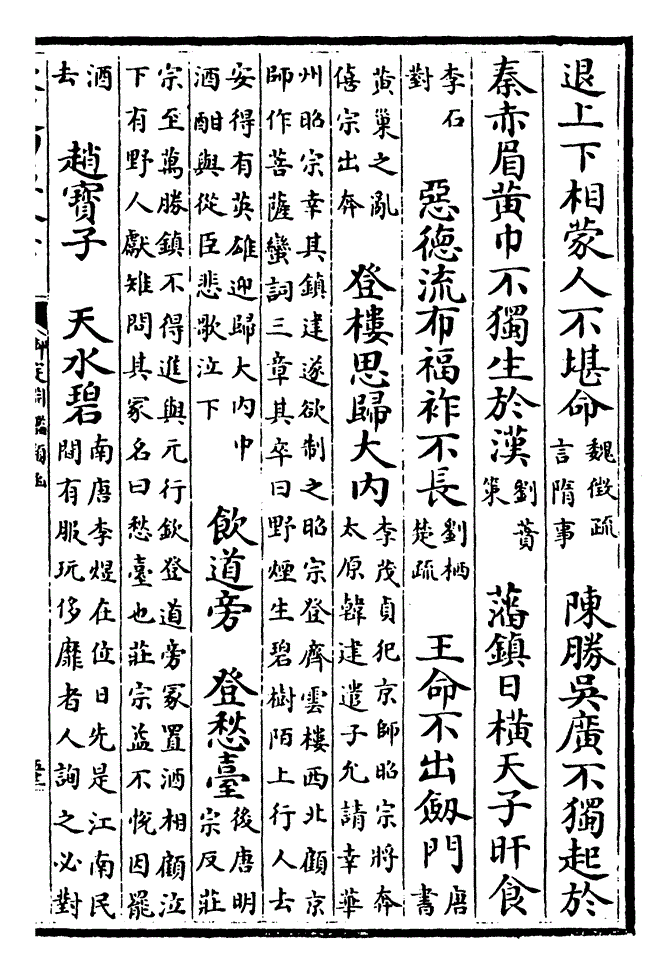 退上下相蒙人不堪命魏徵疏言隋事　陳勝吳廣不獨起於
秦赤眉黃巾不獨生於漢劉蕡策　藩鎮日橫天子旰食
李石對　惡德流布福祚不長劉栖楚疏　王命不出劔門唐書
黃巢之亂僖宗出奔　登樓思歸大內李茂貞犯京師昭宗將奔太原韓建遣子允請幸華
州昭宗幸其鎮建遂欲制之昭宗登齊雲樓西北顧京師作菩薩蠻詞三章其卒曰野煙生碧樹陌上行人去
安得有英雄迎歸大內中酒酣與從臣悲歌泣下　飲道旁　登愁臺後唐明宗反莊
宗至萬勝鎮不得進與元行欽登道旁冢置酒相顧泣下有野人獻雉問其冢名曰愁臺也莊宗益不悅因罷
酒去　趙寶子　天水碧南唐李煜在位日先是江南民間有服玩侈靡者人詢之必對